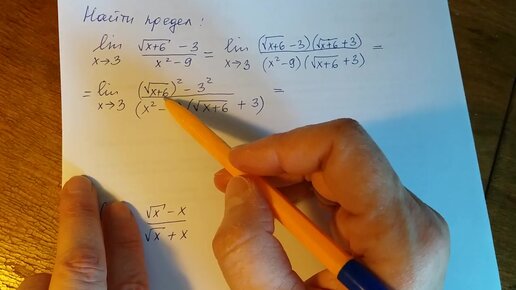 Найти предел:
lim x→3 (√(x+6) - 3)/(x² - 9) = lim x→3 ((√(x+6) - 3)(√(x+6) + 3))/((x² - 9)(√(x+6) + 3)) =
= lim x→3 ((√(x+6))² - 3²)/((x² - (√(x+6) + 3) =
(√x - x)/(√x + x)